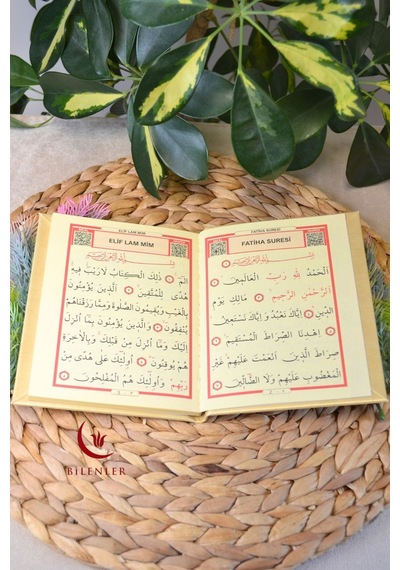 FATİHA SURESİ
FATİHA SURESİ
بِسْمِ اللّٰهِ الرَّحْمٰنِ الرَّحِيمِ
اَلْحَمْدُ لِلّٰهِ رَبِّ الْعَالَمِينَ
الرَّحْمٰنِ الرَّحِيمِ مَالِكِ يَوْمِ
الدِّينِ اِيَّاكَ نَعْبُدُ وَاِيَّاكَ نَسْتَعِينُ
اِهْدِنَا الصِّرَاطَ الْمُسْتَقِيمَ
صِرَاطَ الَّذِينَ اَنْعَمْتَ عَلَيْهِمْ غَيْرِ
الْمَغْضُوبِ عَلَيْهِمْ وَلَا الضَّالِّينَ
ELİF LAM MİM
ELİF LAM MİM
بِسْمِ اللّٰهِ الرَّحْمٰنِ الرَّحِيمِ
الٓمٓ ذٰلِكَ الْكِتَابُ لَا رَيْبَ فِيهِ
هُدًى لِلْمُتَّقِينَ اَلَّذِينَ يُؤْمِنُونَ
بِالْغَيْبِ وَيُقِيمُونَ الصَّلٰوةَ وَمِمَّا رَزَقْنَاهُمْ
يُنْفِقُونَ وَالَّذِينَ يُؤْمِنُونَ بِمَا اُنْزِلَ
اِلَيْكَ وَمَا اُنْزِلَ مِنْ قَبْلِكَ وَبِالْاٰخِرَةِ
هُمْ يُوقِنُونَ اُولٰئِكَ عَلٰى هُدًى مِنْ
رَبِّهِمْ وَاُولٰئِكَ هُمُ الْمُفْلِحُونَ
BİLENLER